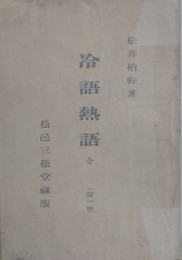 松井柏軒著
冷語熱語 全
松邑三松堂藏版